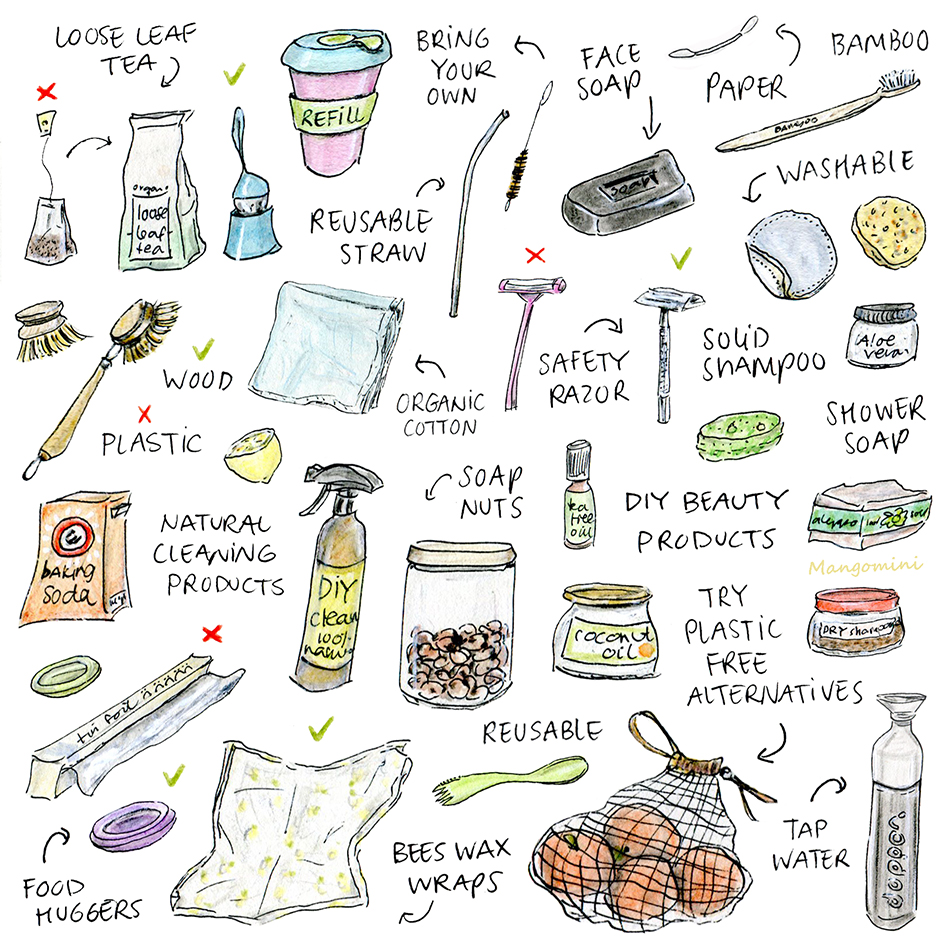 LOOSE LEAF
TEA
REFILL
BRING
YOUR
OWN
FACE
SOAP
PAPER
BAMBOO
BAMBOO
organ
loose
leaf
tea
REUSABLE
STRAW
soap
WASHABLE
WOOD
PLASTIC
ORGANIC
COTTON
SAFETY
RAZOR
SOLID
SHAMPOO
Aloe
vera
SHOWER
SOAP
baking
soda
NATURAL
CLEANING
PRODUCTS
DIY
clean
100%
SOAP
NUTS
tea
tree
oil
DIY BEAUTY
PRODUCTS
Mangomini
coconut
oil
TRY
PLASTIC
FREE
ALTERNATIVES
DRY shampoo
tin foil
REUSABLE
FOOD
HUGGERS
BEES WAX
WRAPS
TAP
WATER
dopper